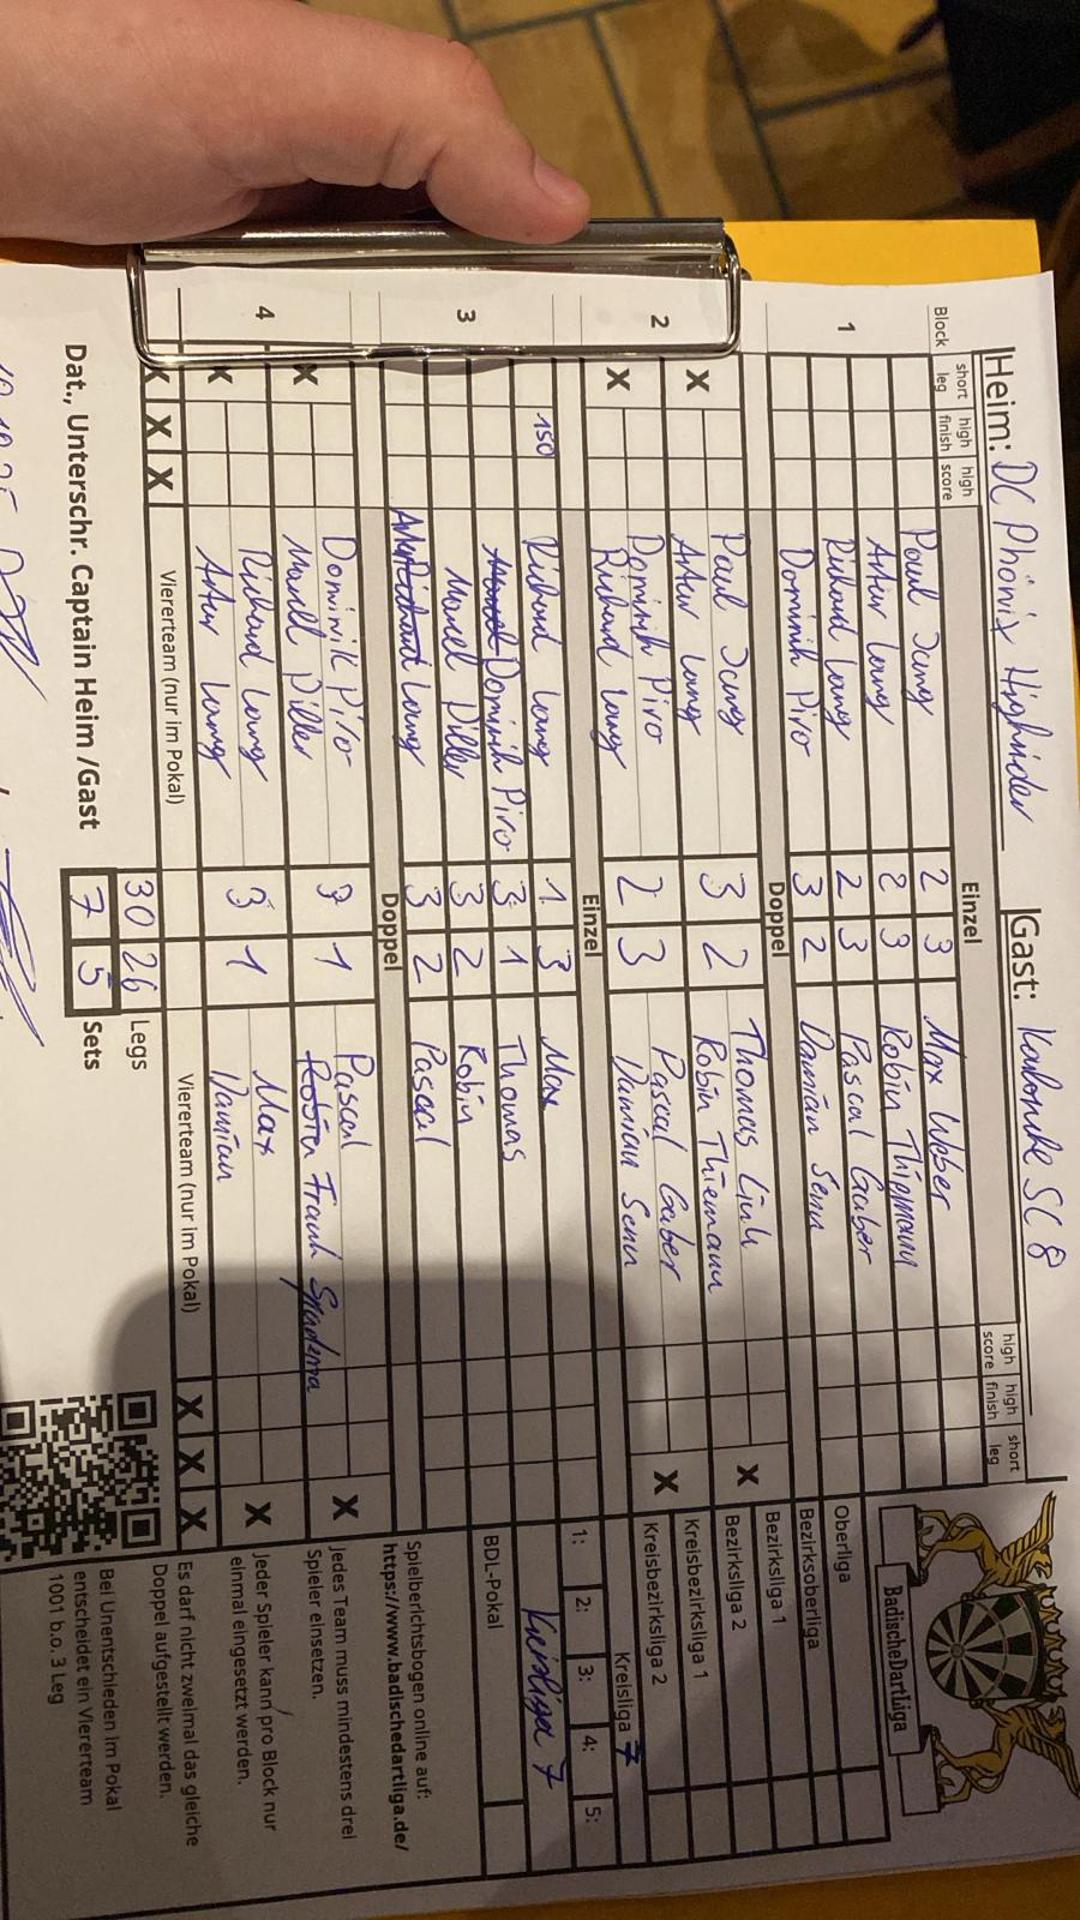 Heim: DC Phönix Highrider Gast: Karlsruhe SC 8
Block short leg high finish high score Einzel high score high finish short leg
1
Paul Jung 2 3 Max Weber
Artur Lang 2 3 Robin Thiemann
Richard Lang 2 3 Pascal Gaber
Dominik Piro 3 2 Damian Senn
Doppel
2
X Paul Jung 3 2 Thomas Link X
Artur Lang Robin Thiemann
X Dominik Piro 2 3 Pascal Gaber X
Richard Lang Damian Senn
Einzel
3
150 Richard Lang 1 3 Max
Marcel Dominik Piro 3 1 Thomas
Marcel Piller 3 2 Robin
Lang 3 2 Pascal
Doppel
4
X Dominik Piro 3 1 Pascal X
Marcel Piller Robin Frank
X Richard Lang 3 1 Max X
Artur Lang Damian
X X X Viererteam (nur im Pokal) Viererteam (nur im Pokal) X X X
30 26 Legs
Dat., Unterschr. Captain Heim /Gast 7 5 Sets
BadischeDartLiga
Oberliga
Bezirksoberliga
Bezirksliga 1
Bezirksliga 2
Kreisbezirksliga 1
Kreisbezirksliga 2
Kreisliga 7
1: 2: 3: 4: 5:
Kreisliga 7
BDL-Pokal
Spielberichtsbogen online auf:
https://www.badischedartliga.de/
Jedes Team muss mindestens drei
Spieler einsetzen.
Jeder Spieler kann pro Block nur
einmal eingesetzt werden.
Es darf nicht zweimal das gleiche
Doppel aufgestellt werden.
Bei Unentschieden im Pokal
entscheidet ein Viererteam
1001 b.o. 3 Leg